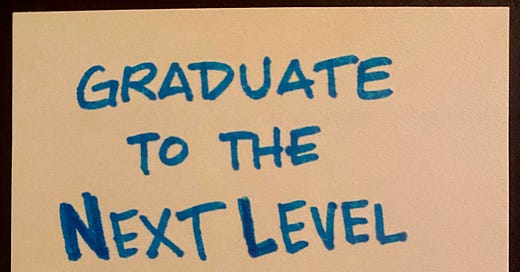 GRADUATE
TO THE
NEXT LEVEL